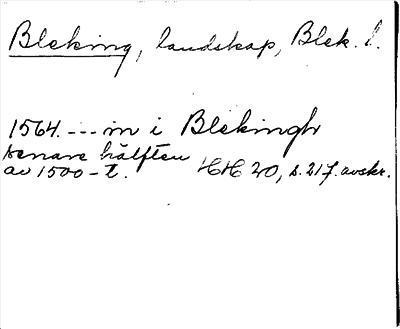 Bleking, landskap, Blek. l.
1564. --- in i Blekingh
senare hälften
av 1500-t. HH 20, s. 217. avskr.